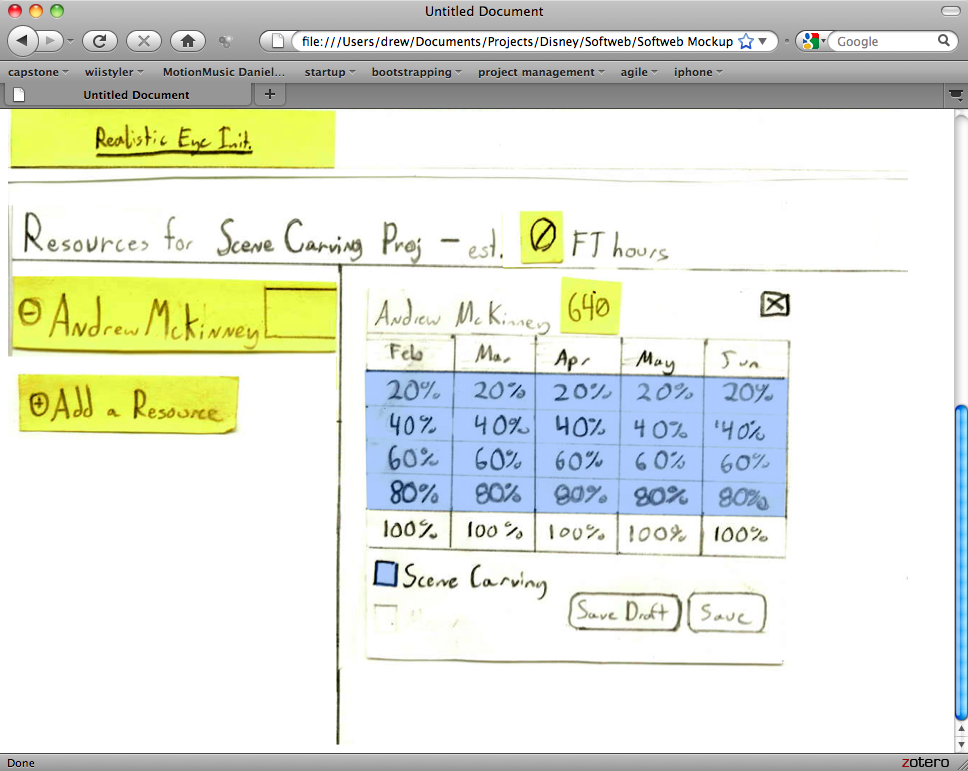 Untitled Document
file:///Users/drew/Documents/Projects/Disney/Softweb/Softweb Mockup
Google
capstone wiistyler MotionMusic Daniel... startup bootstrapping project management agile iphone
Untitled Document
Realistic Eye Init.
Resources for Scene Carving Proj - est. 0 FT hours
Andrew McKinney
Add a Resource
Andrew McKinney 640
Feb Mar Apr May Jun
20% 20% 20% 20% 20%
40% 40% 40% 40% 40%
60% 60% 60% 60% 60%
80% 80% 80% 80% 80%
100% 100% 100% 100% 100%
Scene Carving
Save Draft Save
Done
zotero